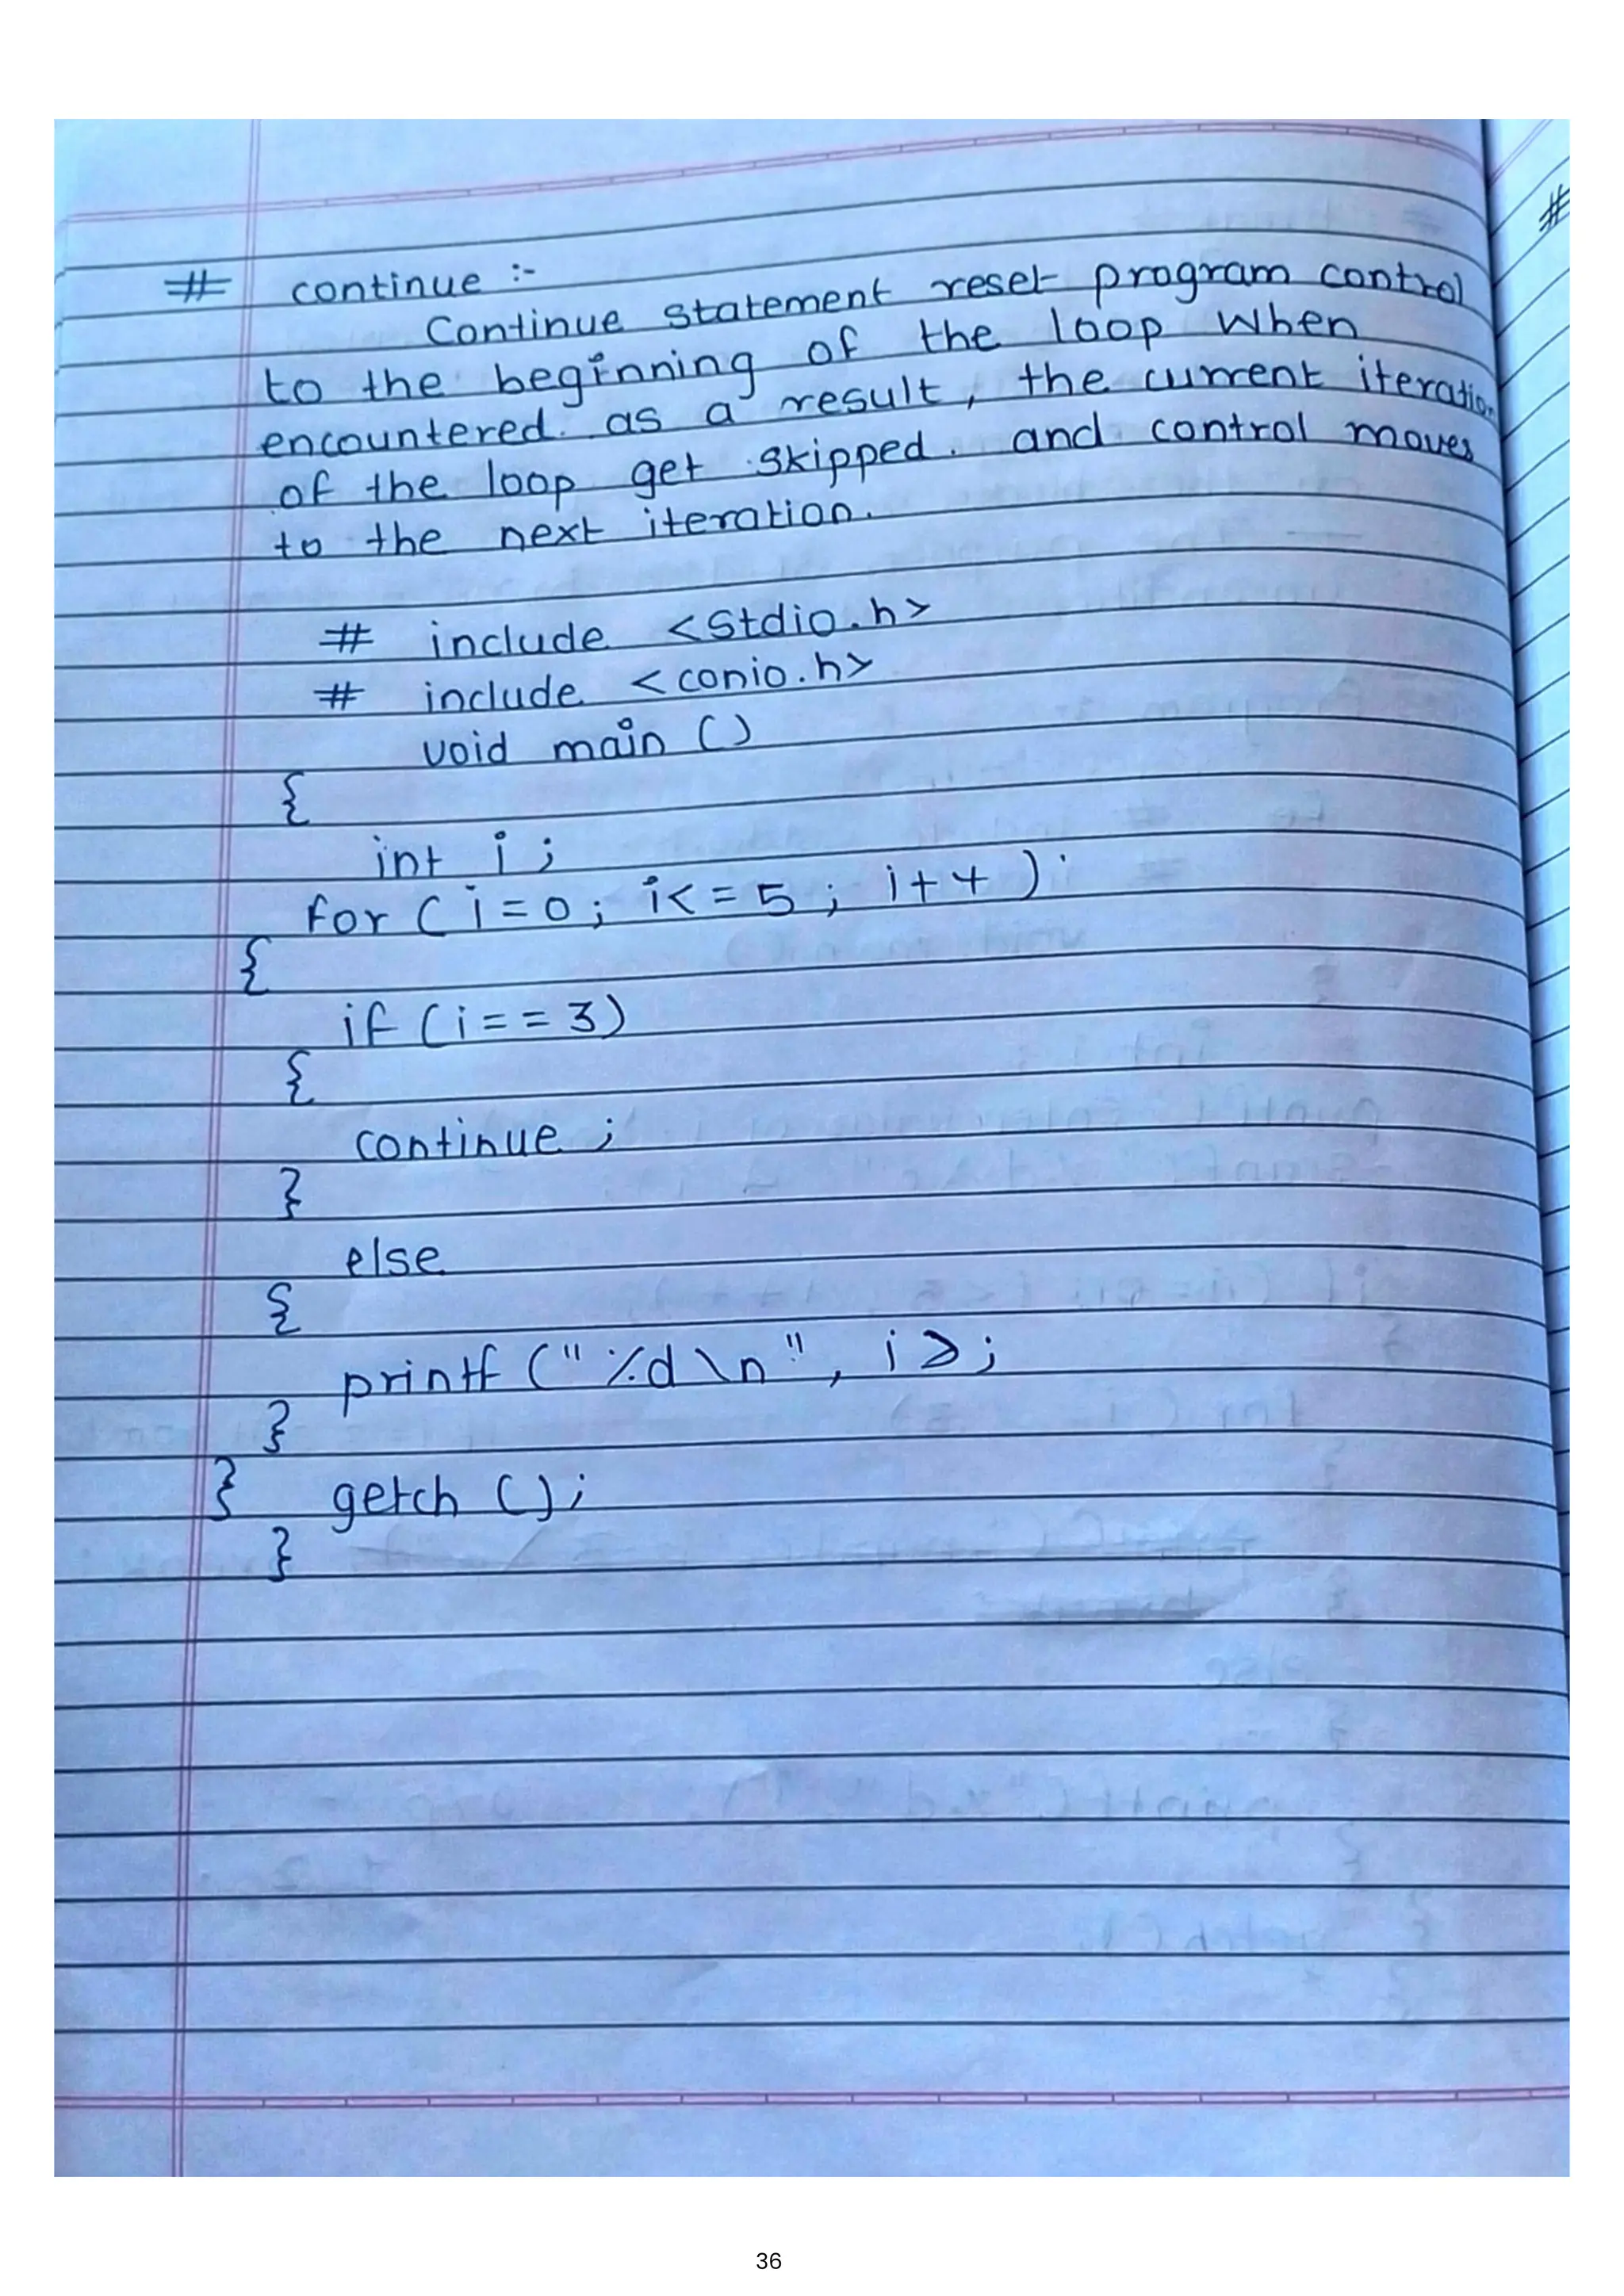 # continue :-
Continue statement reset program control
to the beginning of the loop when
encountered. as a result, the current iteration
of the loop get skipped. and control moves
to the next iteration.
# include <stdio.h>
# include <conio.h>
void main ()
{
int i ;
for ( i = 0 ; i <= 5 ; i++ )
{
if ( i == 3)
{
continue ;
}
else
{
printf (" %d \n ", i );
}
} getch ();
}
#
36